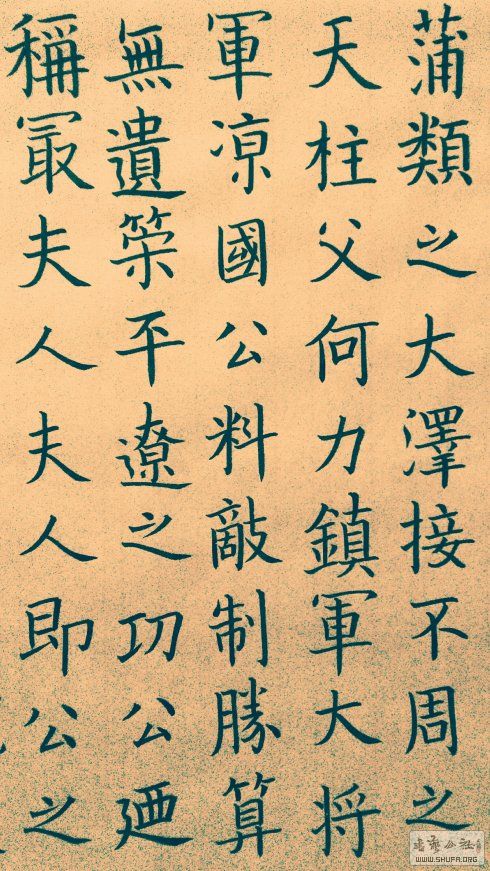 蒲類之大澤接不周之
天柱父何力鎮軍大将
軍凉國公料敵制勝算
無遺策平遼之功公廼
稱冣夫人夫人即公之
WWW.SHUFA.ORG